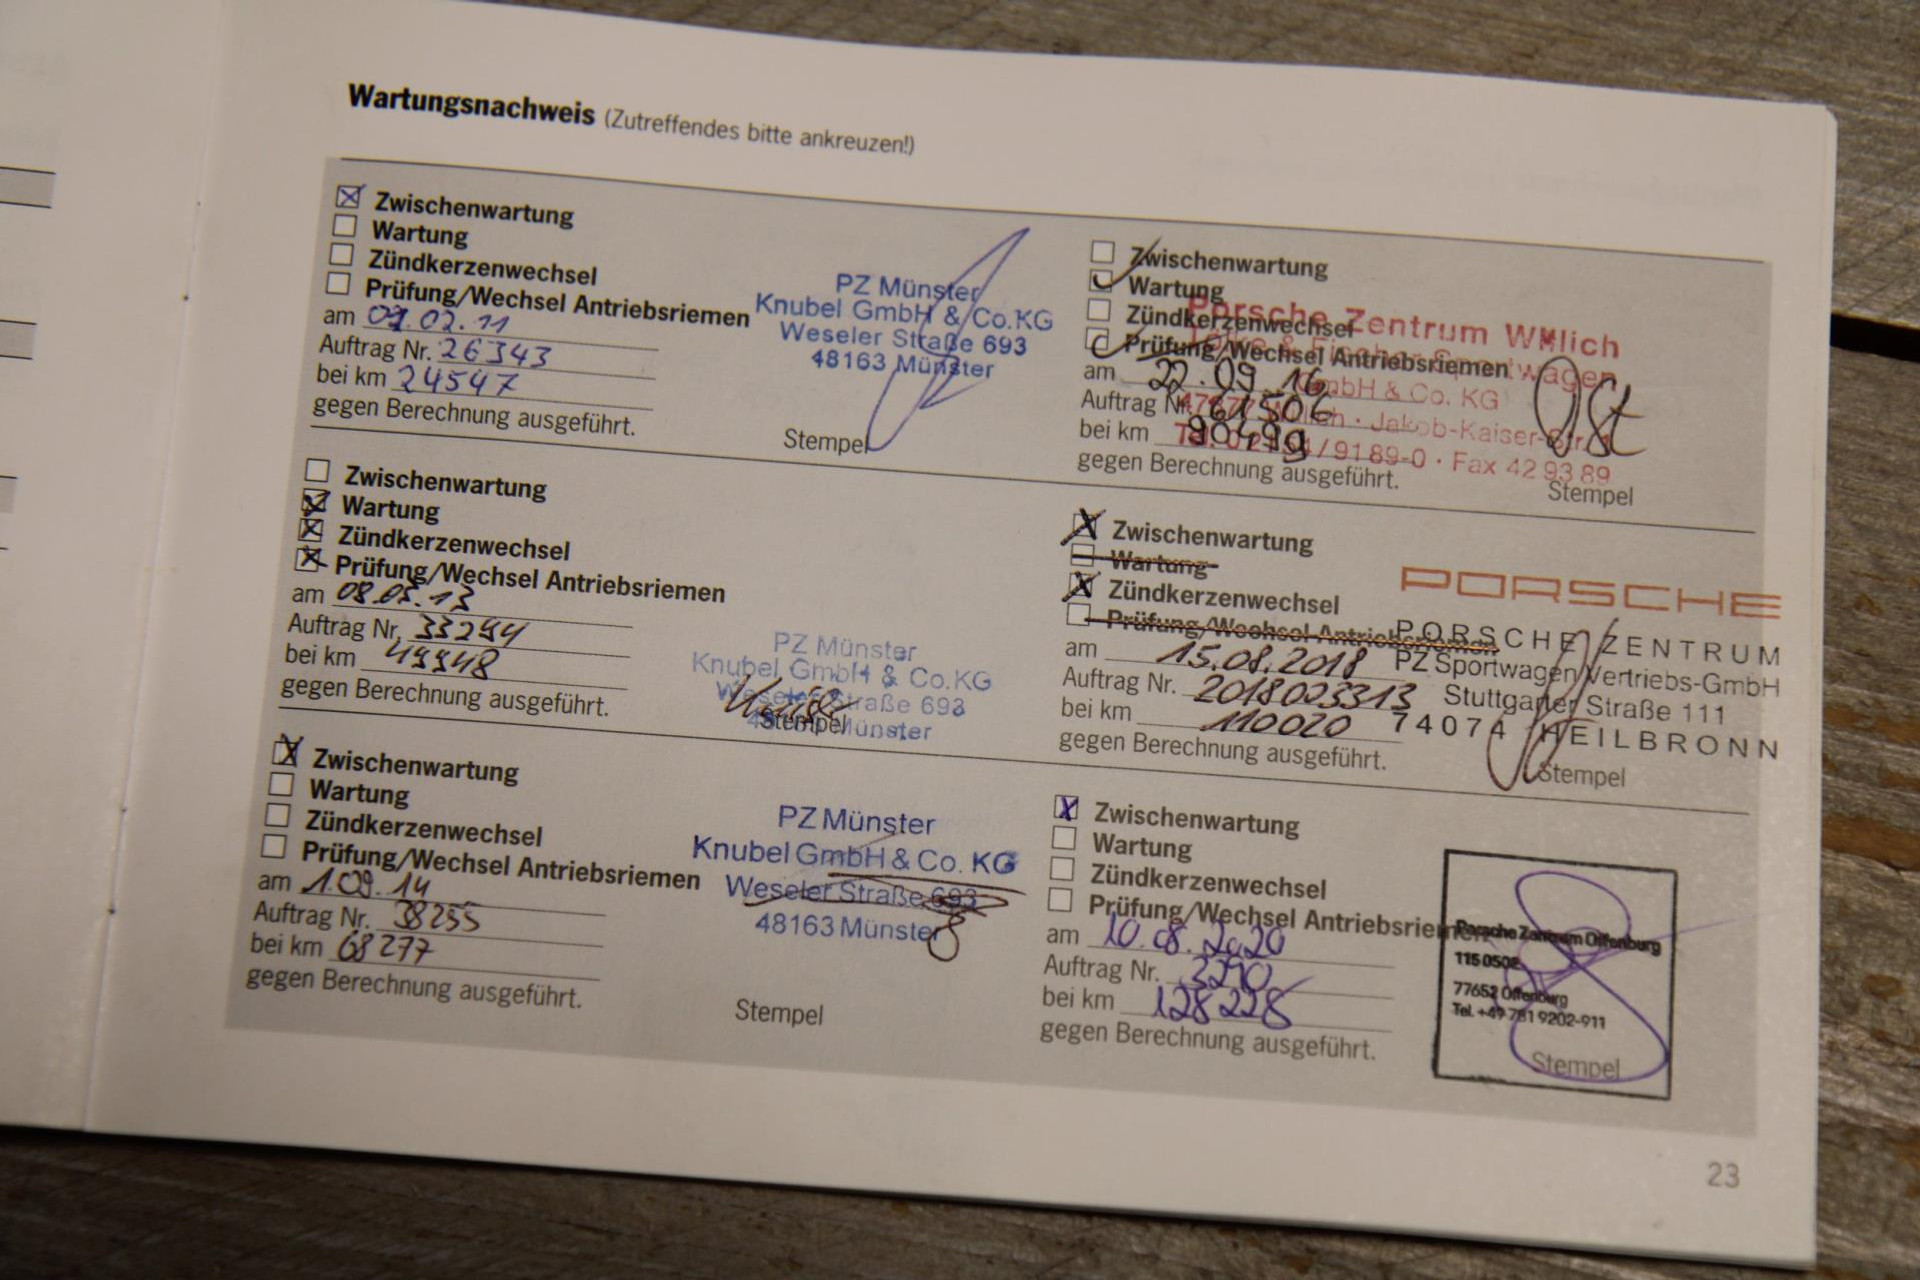 Wartungsnachweis (Zutreffendes bitte ankreuzen!)
Zwischenwartung
Wartung
Zündkerzenwechsel
Prüfung/Wechsel Antriebsriemen
am 02.11
Auftrag Nr. 26343
bei km 24547
gegen Berechnung ausgeführt.
PZ Münster
Knubel GmbH & Co.KG
Weseler Straße 693
48163 Münster
Stempel
Zwischenwartung
Wartung
Zündkerzenwechsel
Prüfung/Wechsel Antriebsriemen
am 13
Auftrag Nr. 33294
bei km
gegen Berechnung ausgeführt.
PZ Münster
Knubel GmbH & Co.KG
Weseler Straße 693
48163 Münster
Stempel
Zwischenwartung
Wartung
Zündkerzenwechsel
Prüfung/Wechsel Antriebsriemen
am 1.09.14
Auftrag Nr. 38255
bei km 68277
gegen Berechnung ausgeführt.
PZ Münster
Knubel GmbH & Co. KG
Weseler Straße 693
48163 Münster
Stempel
Zwischenwartung
Wartung
Zündkerzenwechsel
Prüfung/Wechsel Antriebsriemen
am 22.09.16
Auftrag Nr. 61506
bei km 90499
gegen Berechnung ausgeführt.
Porsche Zentrum Willich
GmbH & Co. KG
Jakob-Kaiser-Str.
/ 91 89-0 · Fax 42 93 89
Stempel
Zwischenwartung
Wartung
Zündkerzenwechsel
Prüfung/Wechsel Antriebsriemen
am 15.08.2018
Auftrag Nr. 2018023313
bei km 110020
gegen Berechnung ausgeführt.
PORSCHE
PORSCHE ZENTRUM
PZ Sportwagen Vertriebs-GmbH
Stuttgarter Straße 111
74074 HEILBRONN
Stempel
Zwischenwartung
Wartung
Zündkerzenwechsel
Prüfung/Wechsel Antriebsriemen
am 10.08.2020
Auftrag Nr. 3210
bei km 128228
gegen Berechnung ausgeführt.
Porsche Zentrum Offenburg
115 0502
77652 Offenburg
Tel. +49 781 9202-911
Stempel
23